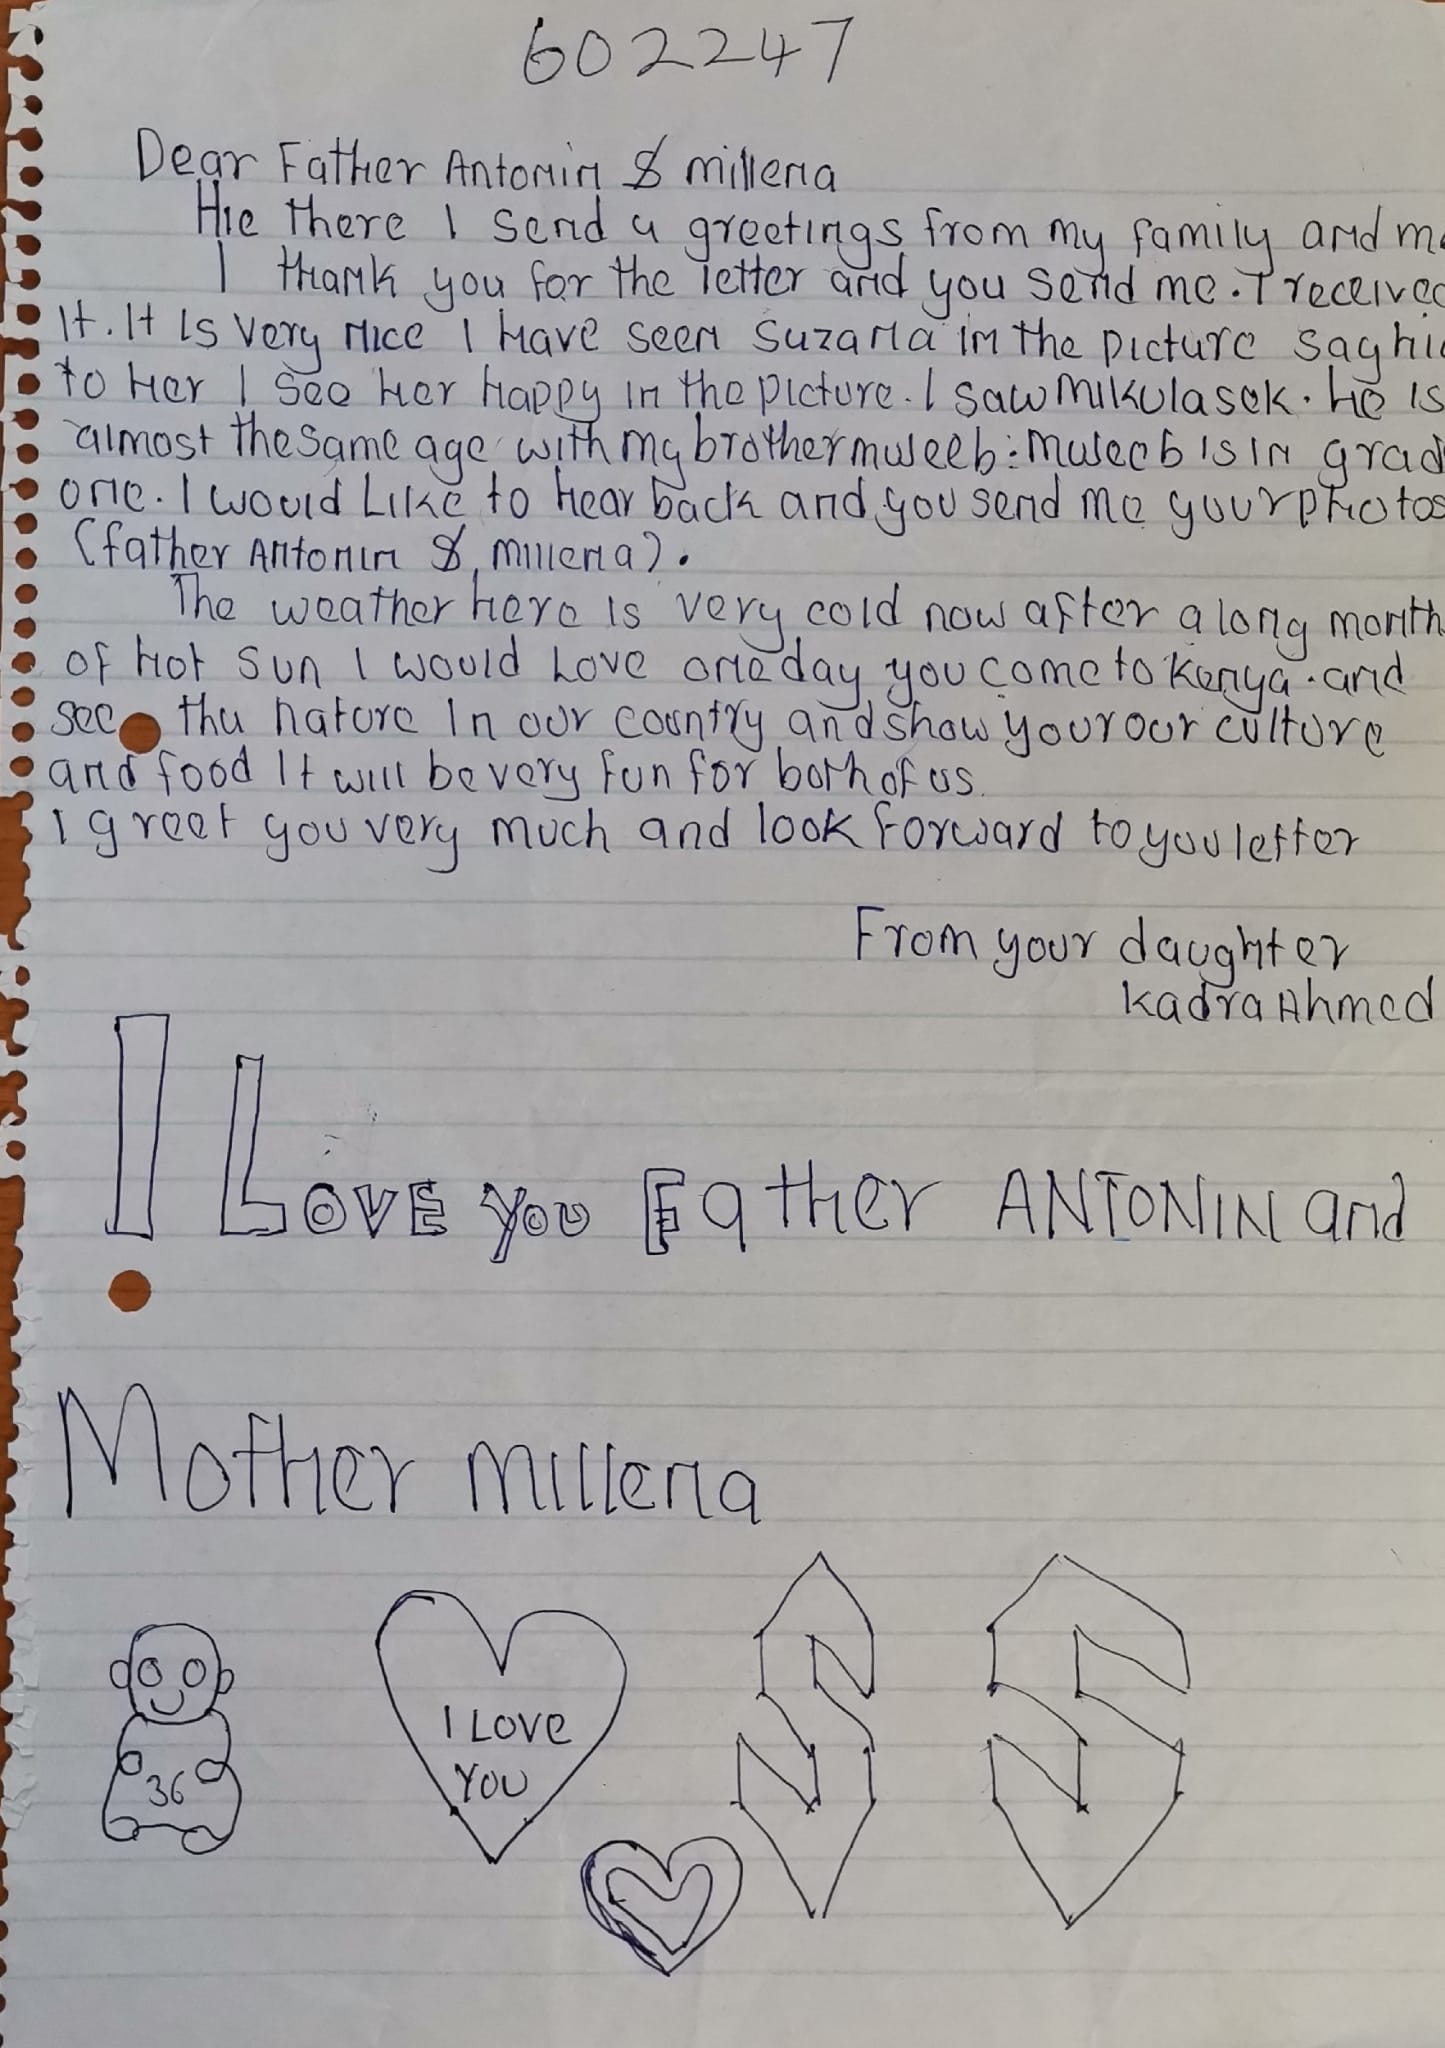 602247
Dear Father Antonin & millena
Hie there I send a greetings from my family and me
I thank you for the letter and you send me. I received
It. It Is very nice I have seen Suzana in the picture say hi
to her I see her happy in the picture. I saw mikulasek. he is
almost the same age with my brother muleeb: muleeb is in grad
one. I would like to hear back and you send me your photos
(father Antonin & millena).
The weather here is very cold now after a long month
of hot sun I would love one day you come to Kenya. and
see the nature in our country and show your our culture
and food It will be very fun for both of us.
I greet you very much and look forward to you letter
From your daughter
Kadra Ahmed
I LOVE YOU Father ANTONIN and
Mother millena
I LOVE
YOU
36